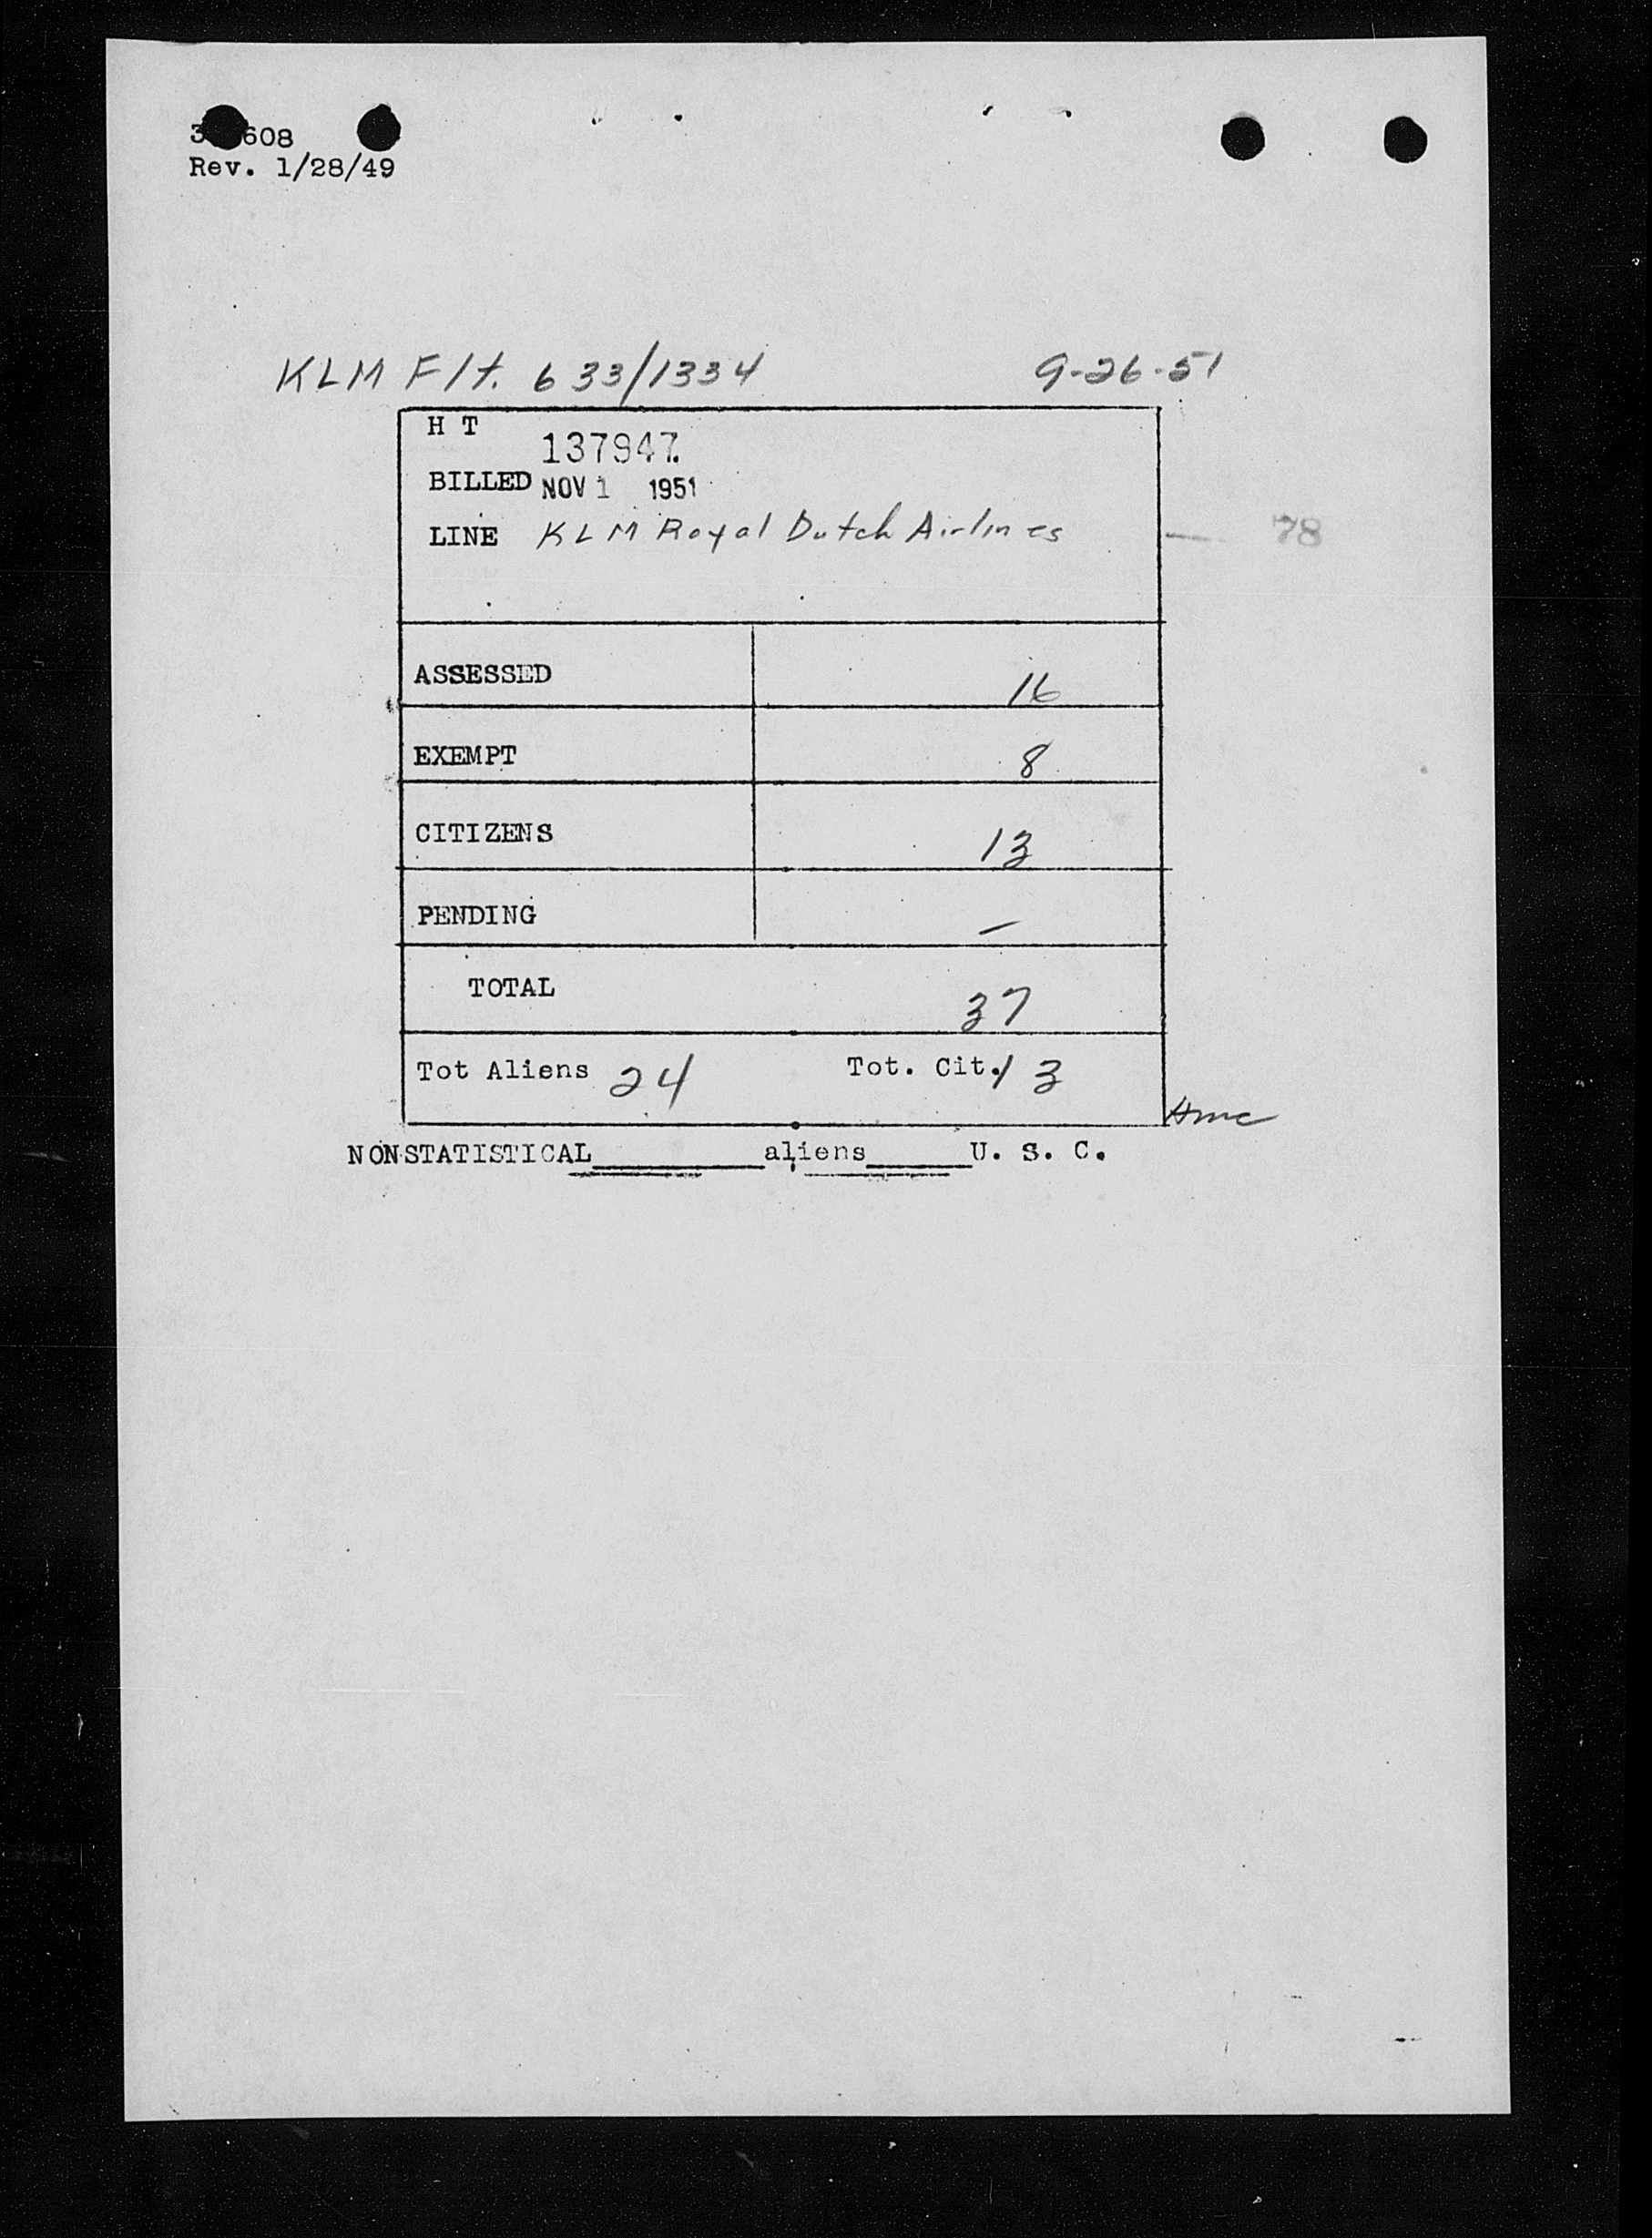 608
Rev. 1/28/49
KLM Flt. 633/1334 9-26-51
H T
137947.
BILLED NOV 1 1951
LINE KLM Royal Dutch Airlines — 78
ASSESSED 16
EXEMPT 8
CITIZENS 13
PENDING —
TOTAL 37
Tot Aliens 24 Tot. Cit. 13
NONSTATISTICAL aliens U. S. C.